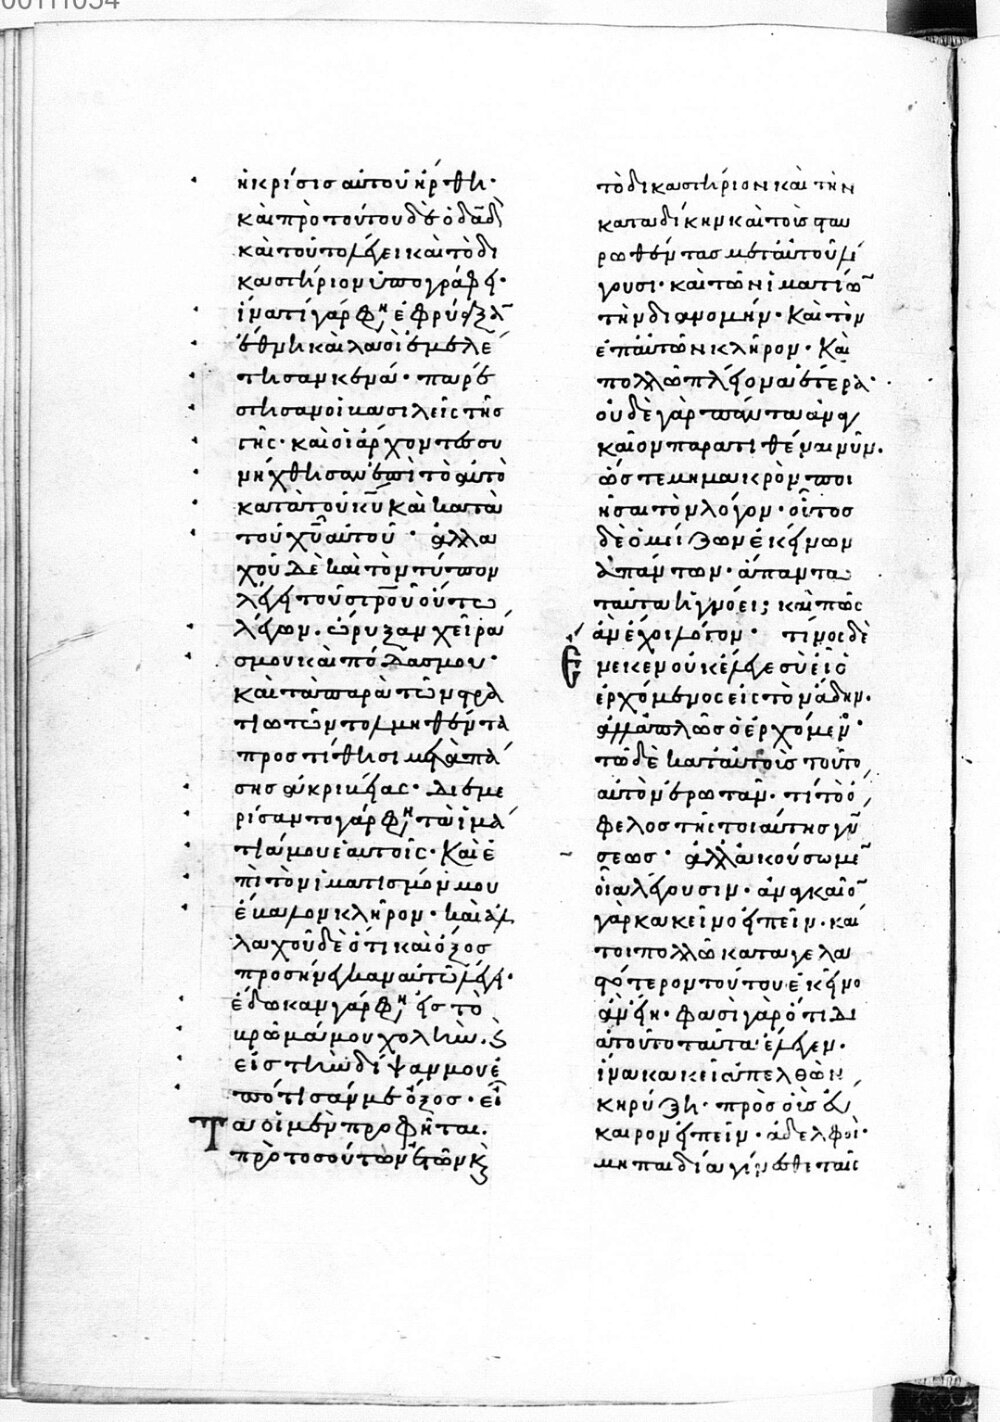 ἡ κρίσις αὐτοῦ ἤρθη·
καὶ πρὸ τούτου δὲ ὁ δᾱδ
καὶ τοῦτο λέγει καὶ τὸ δι
καστήριον ὑπογράφει·
ἱνατί γάρ φη, ἐφρύαξᾱ
ἔθνη καὶ λαοὶ ἐμελέ
τησαν κενά· παρέ
στησαν οἱ βασιλεῖς τῆς
γῆς· καὶ οἱ ἄρχοντες συ
νήχθησαν ἐπὶ τὸ αὐτὸ
κατὰ τοῦ κῡ καὶ κατὰ
τοῦ χῡ αὐτοῦ· ἀλλα
χοῦ δὲ καὶ τὸν τύπον
λέγει τοῦ στρου οὕτω
λέγων· ὤρυξαν χεῖρά
σμου καὶ πόδας μου·
καὶ τὰ παρὰ τῶν στρα
τιωτῶν τολμηθέντα
προστίθησι μετὰ πά
σης ἀκριβείας· διεμε
ρίσαντο γάρ φη, τὰ ἱμά
τιά μου ἑαυτοῖς· καὶ ἐ
πὶ τὸν ἱματισμόν μου
ἔβαλον κλῆρον· καὶ ἀλ
λαχοῦ δὲ ὅτι καὶ ὄξος
προσήνεγκαν αὐτῶ λέγει·
ἔδωκαν γάρ φη, εἰς τὸ
βρῶμά μου χολὴν· κ
εἰς τὴν δίψαν μου ἐ
πότισάν με ὄξος· εἶ
Τα οἱ μὲν προφῆται.
πρὸ τοσούτων ἐτῶν κ
τὸ δικαστήριον καὶ τὴν
καταδίκην καὶ τοὺς σταυ
ρωθέντας μετ' αὐτοῦ λέ
γουσι· καὶ τῶν ἱματίω
τὴν διανομήν· καὶ τὸν
ἐπ' αὐτῶν κλῆρον· καὶ
πολλῶ πλείονα ἕτερα·
οὐδὲ γὰρ πάντα ἀναγ
καῖον παρατιθέναι νῦν·
ὥστε μὴ μακρὸν ποι
ῆσαι τὸν λόγον· οὗτος
δὲ ὁ μείζων ἐκείνων
ἁπάντων· ἅπαντα
ταῦτα ἠγνόει; καὶ πῶς
ἂν ἔχοι λόγον· τίνος δὲ
Ενεκεν οὐκ ἔλεγε σὺ εἶ ὁ
ἐρχόμενος εἰς τὸν ἅδην·
ἀλλ' ἁπλῶς ὁ ἐρχόμεν
τὸ δὲ κατ' αὐτοὺς τοῦτο,
αὐτὸν ἐρωτᾶν· τί τὸ ὄ
φελος τῆς τοιαύτης γν
σεως· ἀλλ' ἀκούσωμε
οἷα λέγουσιν· ἀναγκαῖο
γὰρ κακεῖνο εἰπεῖν· καί
τοι πολλῶ καταγελα
στότερον τούτου ἐκεῖνο
ἂν εἴη· φασὶ γὰρ ὅτι δι
ὰ τοῦτο ταῦτα ἔλεγεν·
ἵνα κακεῖ ἀπελθὼν
κηρύξη· πρὸς οὓς εὔ
καιρον εἰπεῖν· ἀδελφοί·
μὴ παιδία γίνεσθε ταῖς